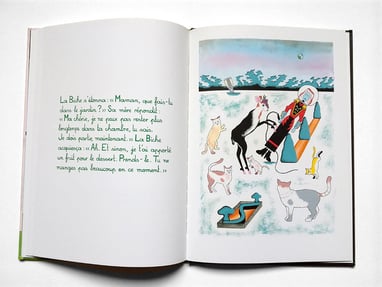 La Biche s'étonna : « Maman, que fais-tu
dans le jardin ? » Sa mère répondit :
« Ma chérie, je ne peux pas rester plus
longtemps dans la chambre, tu sais.
Je dois partir maintenant. » La Biche
acquiesça : « Ah. Et sinon, je t'ai apporté
un fruit pour le dessert. Prends-le. Tu ne
manges pas beaucoup en ce moment. »